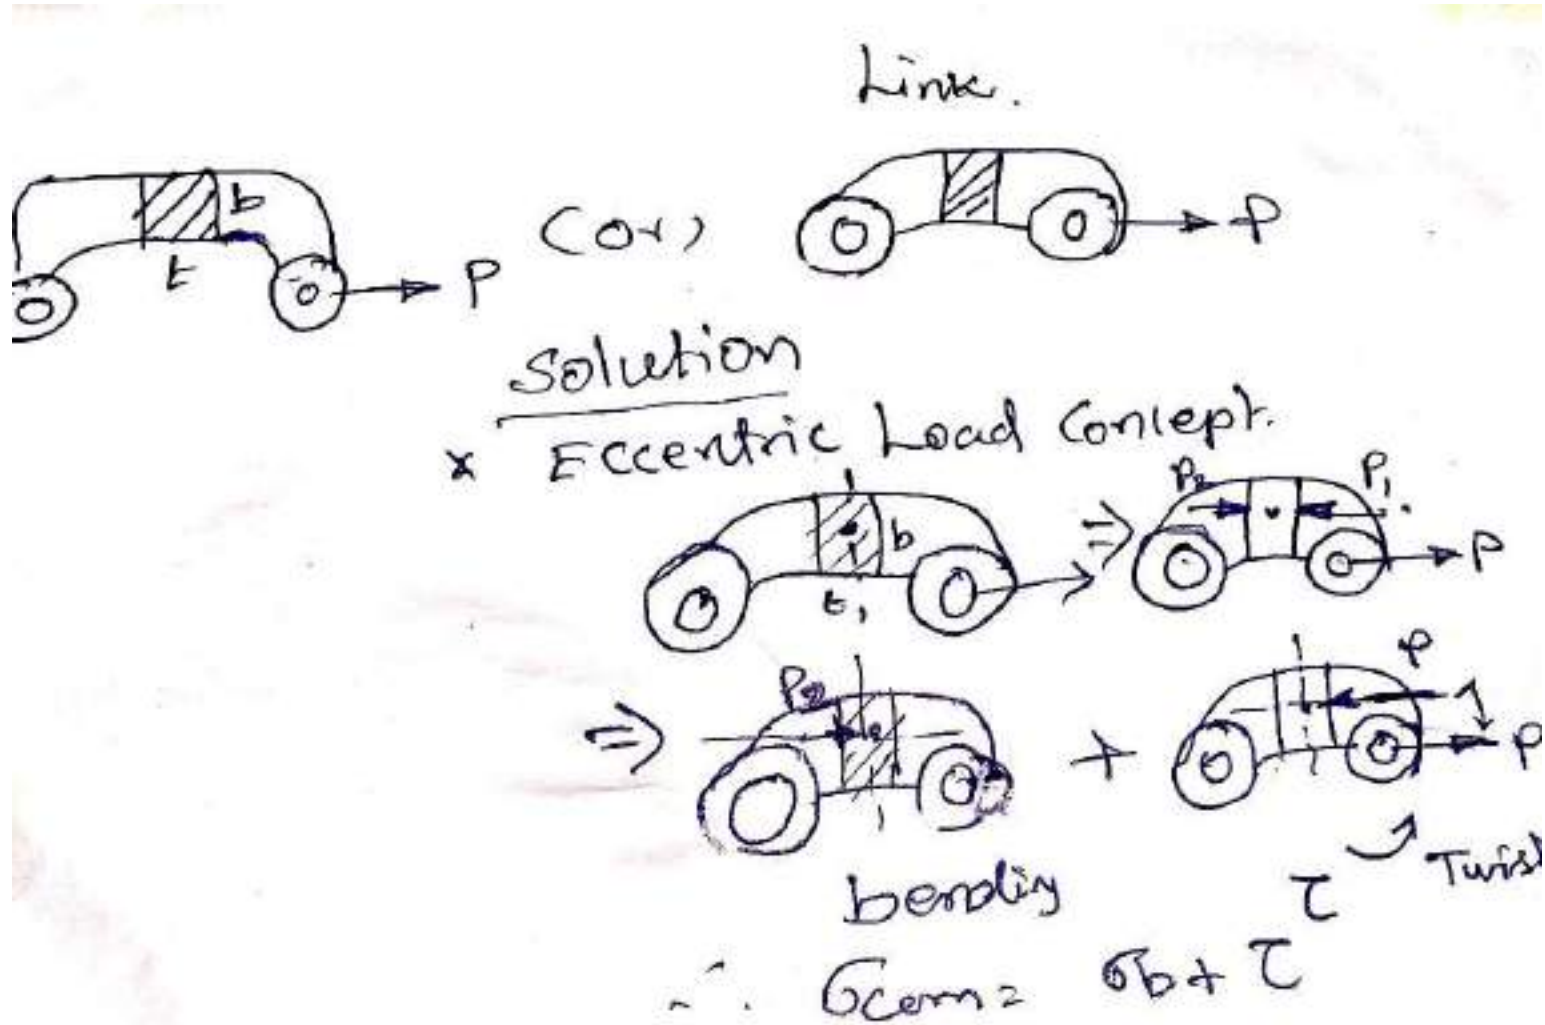 Link.
b
t
P
(or)
P
Solution
* Eccentric Load Concept.
b
t,
⇒
P2
P1
P
⇒
P2
+
P
P
bending
τ
Twist
∴ σcom = σb + τ